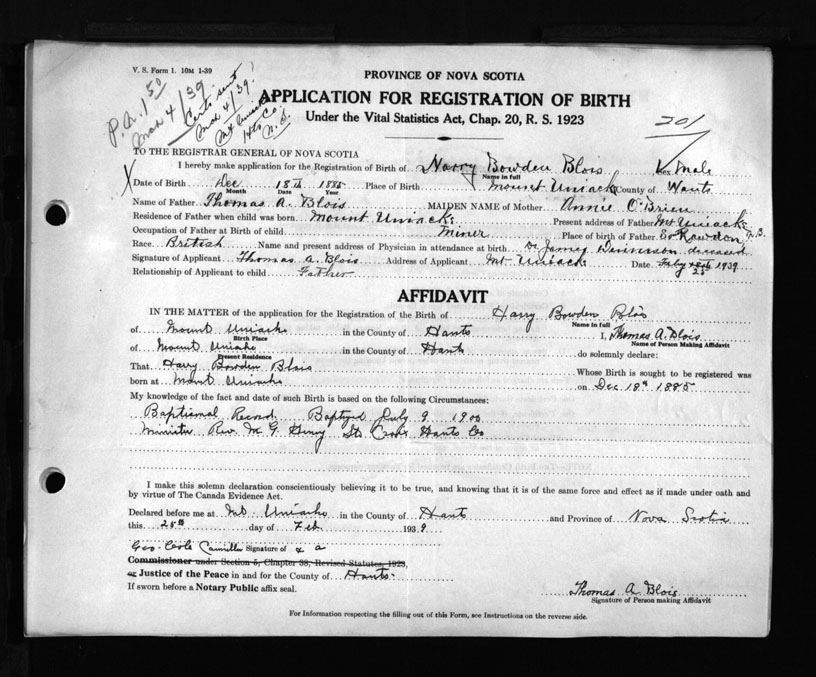 V. S. Form 1. 10M 1-39
P.A. 1 50
Mar 4/39
Certs sent
Mar 4/39!
Mt. Uniacke
Hts Co.
N. S.
PROVINCE OF NOVA SCOTIA
APPLICATION FOR REGISTRATION OF BIRTH
Under the Vital Statistics Act, Chap. 20, R. S. 1923
201
TO THE REGISTRAR GENERAL OF NOVA SCOTIA
I hereby make application for the Registration of Birth of Harry Bowden Blois Sex Male
Name in full
X Date of Birth Dec 18th 1885 Place of Birth Mount Uniacke County of Hants
Month Date Year
Name of Father Thomas A. Blois MAIDEN NAME of Mother Annie O'Brien
Residence of Father when child was born Mount Uniacke Present address of Father Mt Uniacke
Occupation of Father at Birth of child Miner Place of birth of Father Rawdon
Race British Name and present address of Physician in attendance at birth Dr James deceased
Signature of Applicant Thomas A. Blois Address of Applicant Mt Uniacke Date Feby 25 1939
Relationship of Applicant to child Father
AFFIDAVIT
IN THE MATTER of the application for the Registration of the Birth of Harry Bowden Blois
Name in full
of Mount Uniacke in the County of Hants I, Thomas A. Blois
Birth Place Name of Person Making Affidavit
of Mount Uniacke in the County of Hants do solemnly declare:
Present Residence
That Harry Bowden Blois Whose Birth is sought to be registered was
born at Mount Uniacke on Dec 18th 1885
My knowledge of the fact and date of such Birth is based on the following Circumstances:
Baptismal Record Baptyzed July 9 1900
Minister Rev. Croix Hants Co
I make this solemn declaration conscientiously believing it to be true, and knowing that it is of the same force and effect as if made under oath and
by virtue of The Canada Evidence Act.
Declared before me at Mt Uniacke in the County of Hants and Province of Nova Scotia
this 25th day of Feb 1939
Geo. Cole Signature of a
Commissioner under Section 5, Chapter 38, Revised Statutes, 1923,
or Justice of the Peace in and for the County of Hants
If sworn before a Notary Public affix seal.
Thomas A. Blois
Signature of Person making Affidavit
For Information respecting the filling out of this Form, see Instructions on the reverse side.